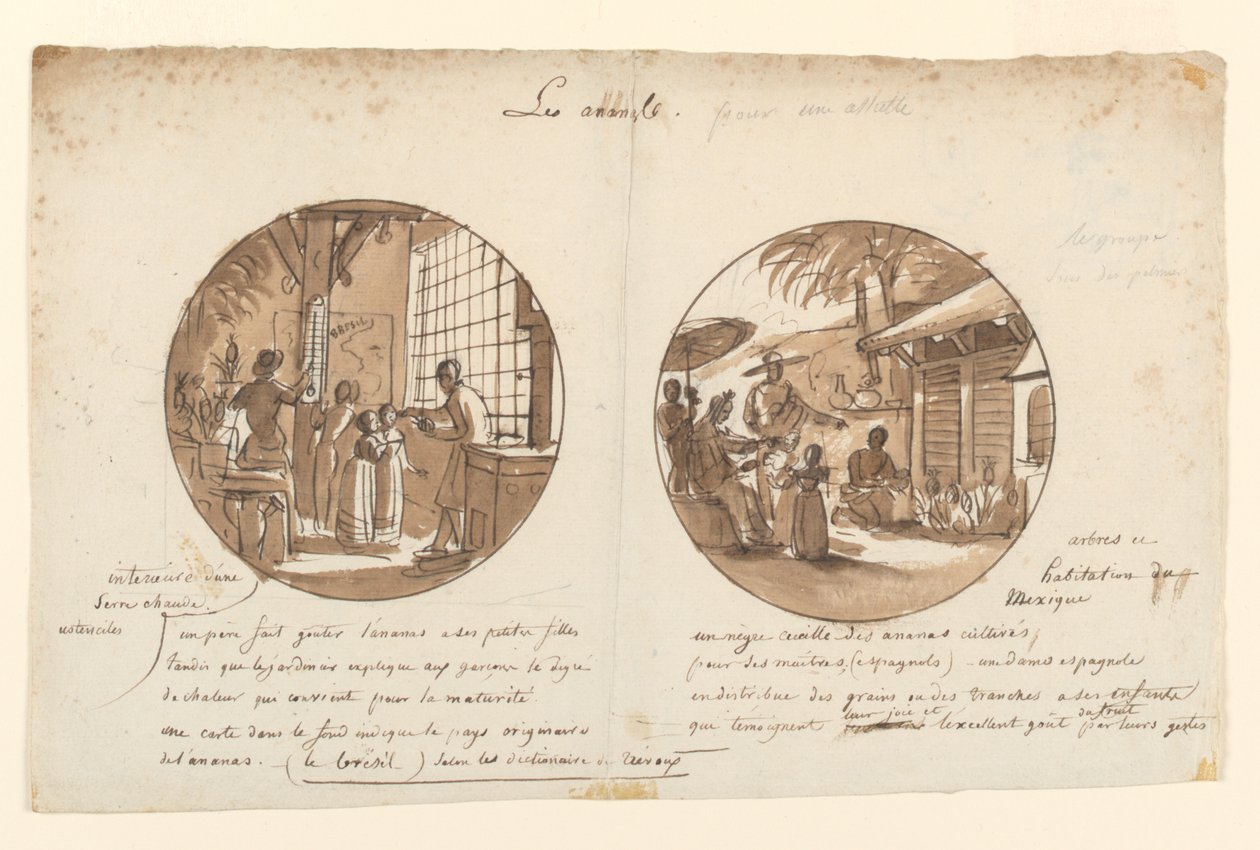 Les ananas. pour une assiette
le groupe
sous des palmiers
BRESIL
interieure d'une
Serre chaude.
ustenciles
un père fait goûter l'ananas a ses petites filles
tandis que le jardinier explique aux garçons le degré
de chaleur qui convient pour la maturité.
une carte dans le fond indique le pays originaire
de l'ananas. - (le brésil) selon les dictionaire de trévoux
arbres et
habitation du
Mexique
un nègre cueille des ananas cultivés
pour ses maitres, (espagnols) - une dame espagnole
en distribue des grains ou des tranches a ses enfants
qui témoignent leur joie et l'excellent goût du fruit par leurs gestes